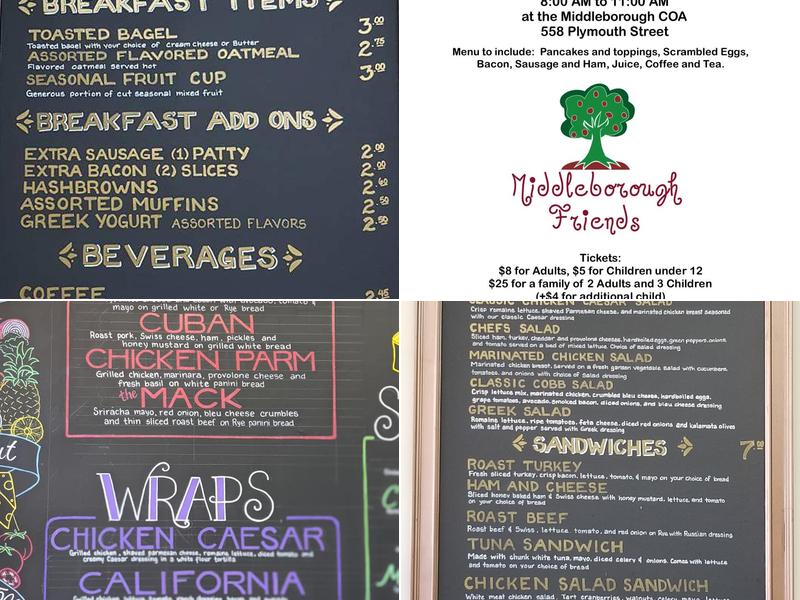 BREAKFAST ITEMS
TOASTED BAGEL 3.00
Toasted bagel with your choice of cream cheese or Butter
ASSORTED FLAVORED OATMEAL 2.75
Flavored oatmeal served hot
SEASONAL FRUIT CUP 3.00
Generous portion of cut seasonal mixed fruit
BREAKFAST ADD ONS
EXTRA SAUSAGE (1) PATTY 2.00
EXTRA BACON (2) SLICES 2.00
HASHBROWNS 2.60
ASSORTED MUFFINS 2.50
GREEK YOGURT ASSORTED FLAVORS 2.50
BEVERAGES
COFFEE 2.45
8:00 AM to 11:00 AM
at the Middleborough COA
558 Plymouth Street
Menu to include: Pancakes and toppings, Scrambled Eggs,
Bacon, Sausage and Ham, Juice, Coffee and Tea.
Middleborough
Friends
Tickets:
$8 for Adults, $5 for Children under 12
$25 for a family of 2 Adults and 3 Children
(+$4 for additional child)
mayo on grilled white or Rye bread
CUBAN
Roast pork, Swiss cheese, ham, pickles and
honey mustard on grilled white bread
CHICKEN PARM
Grilled chicken, marinara, provolone cheese and
fresh basil on white panini bread
the MACK
Sriracha mayo, red onion, bleu cheese crumbles
and thin sliced roast beef on Rye panini bread
WRAPS
CHICKEN CAESAR
Grilled chicken, shaved parmesan cheese, romaine lettuce, diced tomato and
creamy Caesar dressing in a white flour tortilla
CALIFORNIA
CLASSIC CHICKEN CAESAR SALAD
Crisp romaine lettuce, shaved Parmesan cheese, and marinated chicken breast seasoned
with our classic Caesar dressing
CHEFS SALAD
Sliced ham, turkey, cheddar and provolone cheeses, hardboiled eggs, green peppers, onions
and tomato served on a bed of mixed lettuce. Choice of salad dressing
MARINATED CHICKEN SALAD
Marinated chicken breast, served on a fresh garden vegetable salad with cucumbers
tomatoes, and onions with choice of Salad dressing
CLASSIC COBB SALAD
Crisp lettuce mix, marinated chicken, crumbled bleu cheese, hardboiled eggs,
grape tomatoes, avocado, smoked bacon, sliced onions, and bleu cheese dressing
GREEK SALAD
Romaine lettuce, ripe tomatoes, feta cheese, diced red onions and kalamata olives
with salt and pepper served with Greek dressing
SANDWICHES 7.00
ROAST TURKEY
Fresh sliced turkey, crisp bacon, lettuce, tomato, & mayo on your choice of bread
HAM AND CHEESE
Sliced honey baked ham & Swiss cheese with honey mustard, lettuce, and tomato
on your choice of bread
ROAST BEEF
Roast beef & Swiss, lettuce, tomato, and red onion on Rye with Russian dressing
TUNA SANDWICH
Made with chunk white tuna, mayo, diced celery & onions. Comes with lettuce
and tomato on your choice of bread
CHICKEN SALAD SANDWICH
White meat chicken salad, Tart cranberries, walnuts, celery, mayo, lettuce